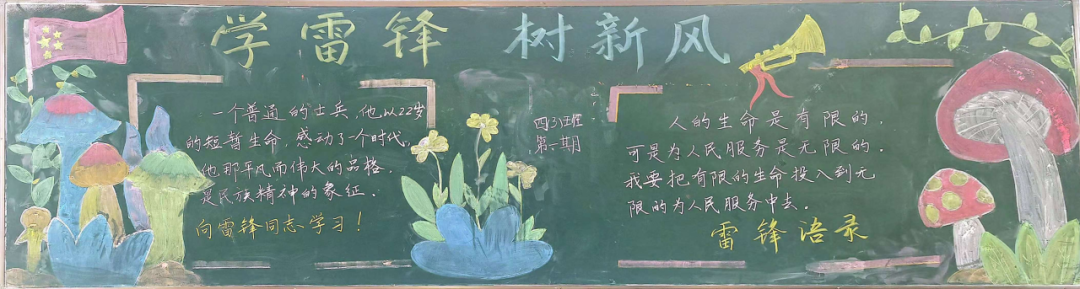 学雷锋 树新风
一个普通的士兵,他以22岁
的短暂生命,感动了一个时代,
他那平凡而伟大的品格,
是民族精神的象征.
向雷锋同志学习!
四3班
第一期
人的生命是有限的,
可是为人民服务是无限的.
我要把有限的生命投入到无
限的为人民服务中去.
雷锋语录